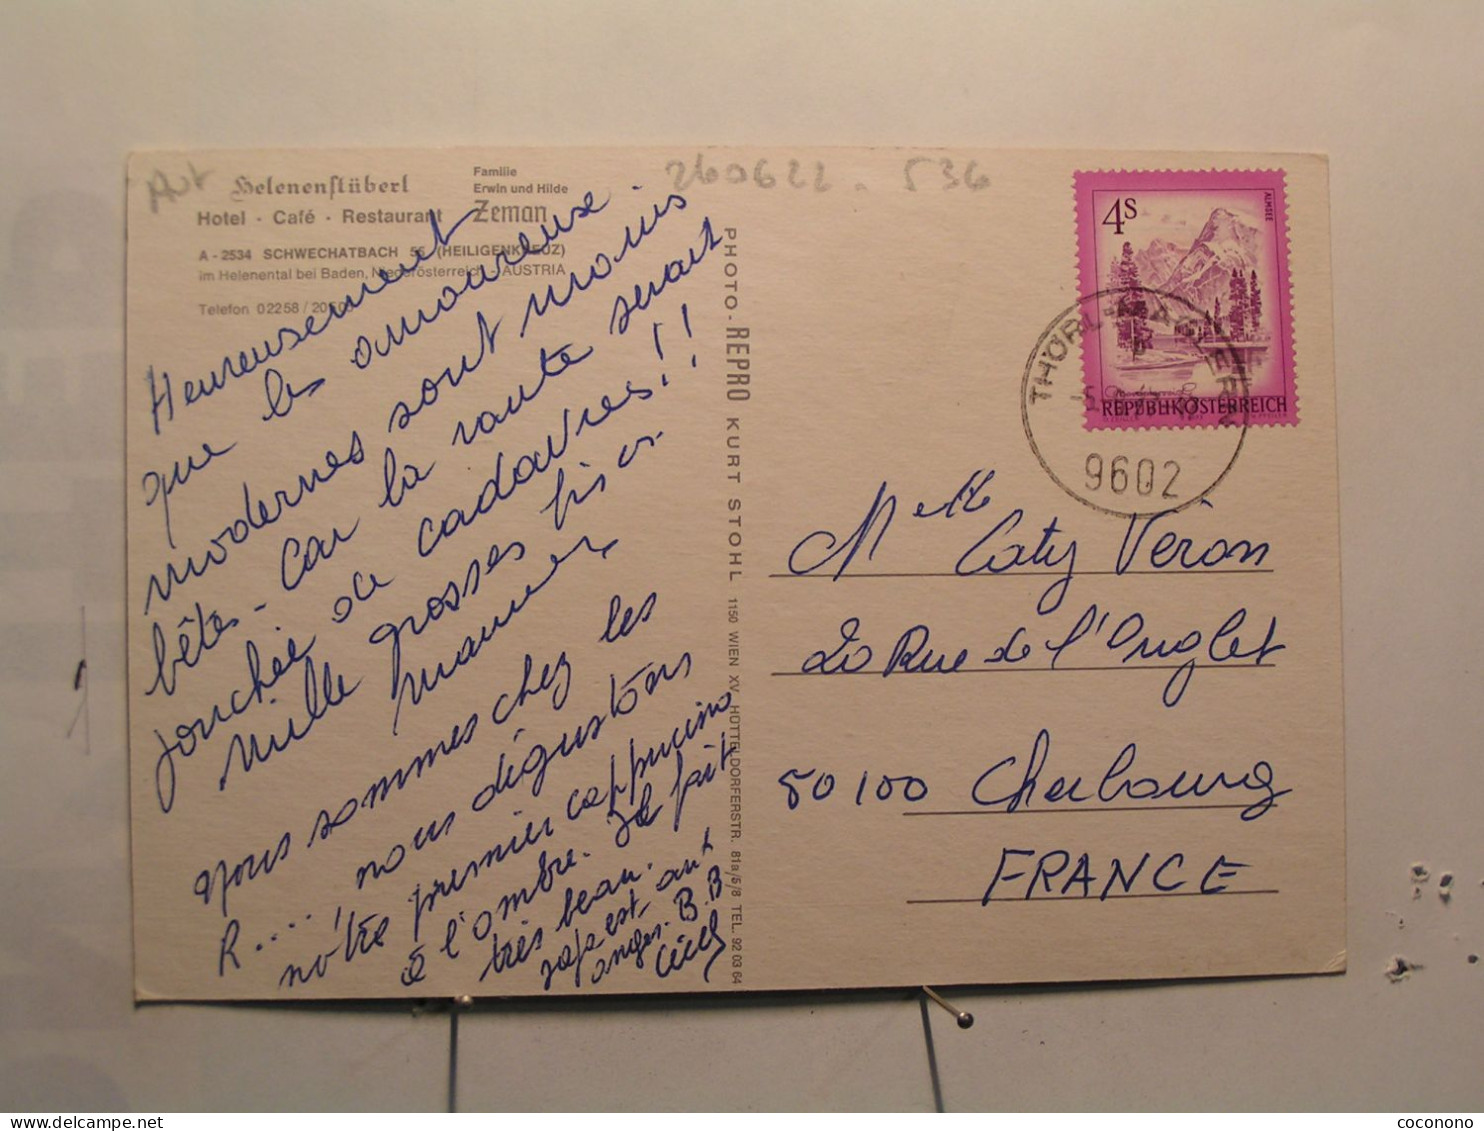 Aut
260622 - 536
Helenenstüberl
Hotel - Café - Restaurant
Familie
Erwin und Hilde
Zeman
A - 2534 SCHWECHATBACH 56 (HEILIGENKREUZ)
im Helenental bei Baden, Niederösterreich - AUSTRIA
Telefon 02258 /
Heureusement
que les amoureuse
modernes sont moins
bêtes - Car la route serait
jonchée de cadavres!!
Mille grosses bises
Nous sommes chez les
R.... nous dégustons
notre premier cappucino
à l'ombre. Il fait
très beau.
B.B
Cécile
PHOTO - REPRO KURT STOHL 1150 WIEN XV, HÜTTELDORFERSTR. 81a/5/8 TEL. 92 03 64
4S
ALMSEE
REPUBLIK ÖSTERREICH
THÖRL-MAGLERN
9602
Melle Caty Véron
20 Rue de l'Onglet
50100 Cherbourg
FRANCE
coconono